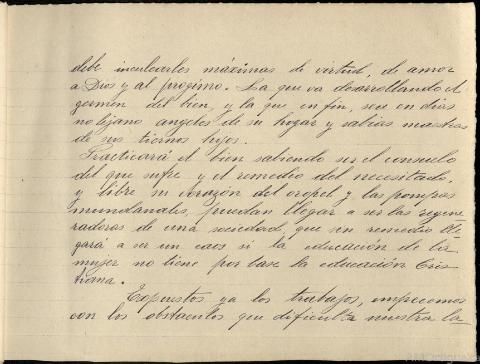 debe inculcarles máximas de virtud, de amor
a Dios y al progimo. La que va desarrollando el
germen del bien, y la que en fin, sea en dias
no lejano angeles de su hogar y sabias maestras
de sus tiernos hijos.
Practicará el bien sabiendo ser el consuelo
del que sufre y el remedio del necesitado,
y libre su corazón del oropel y las pompas
mundanales, puedan llegar a ser las regene
radoras de una sociedad, que sin remedio lle
gará a ser un caos si la educación de la
mujer no tiene por base la educación Cris
tiana.
Expuestos ya los trabajos, empecemos
con los obstaculos que dificulta nuestra la